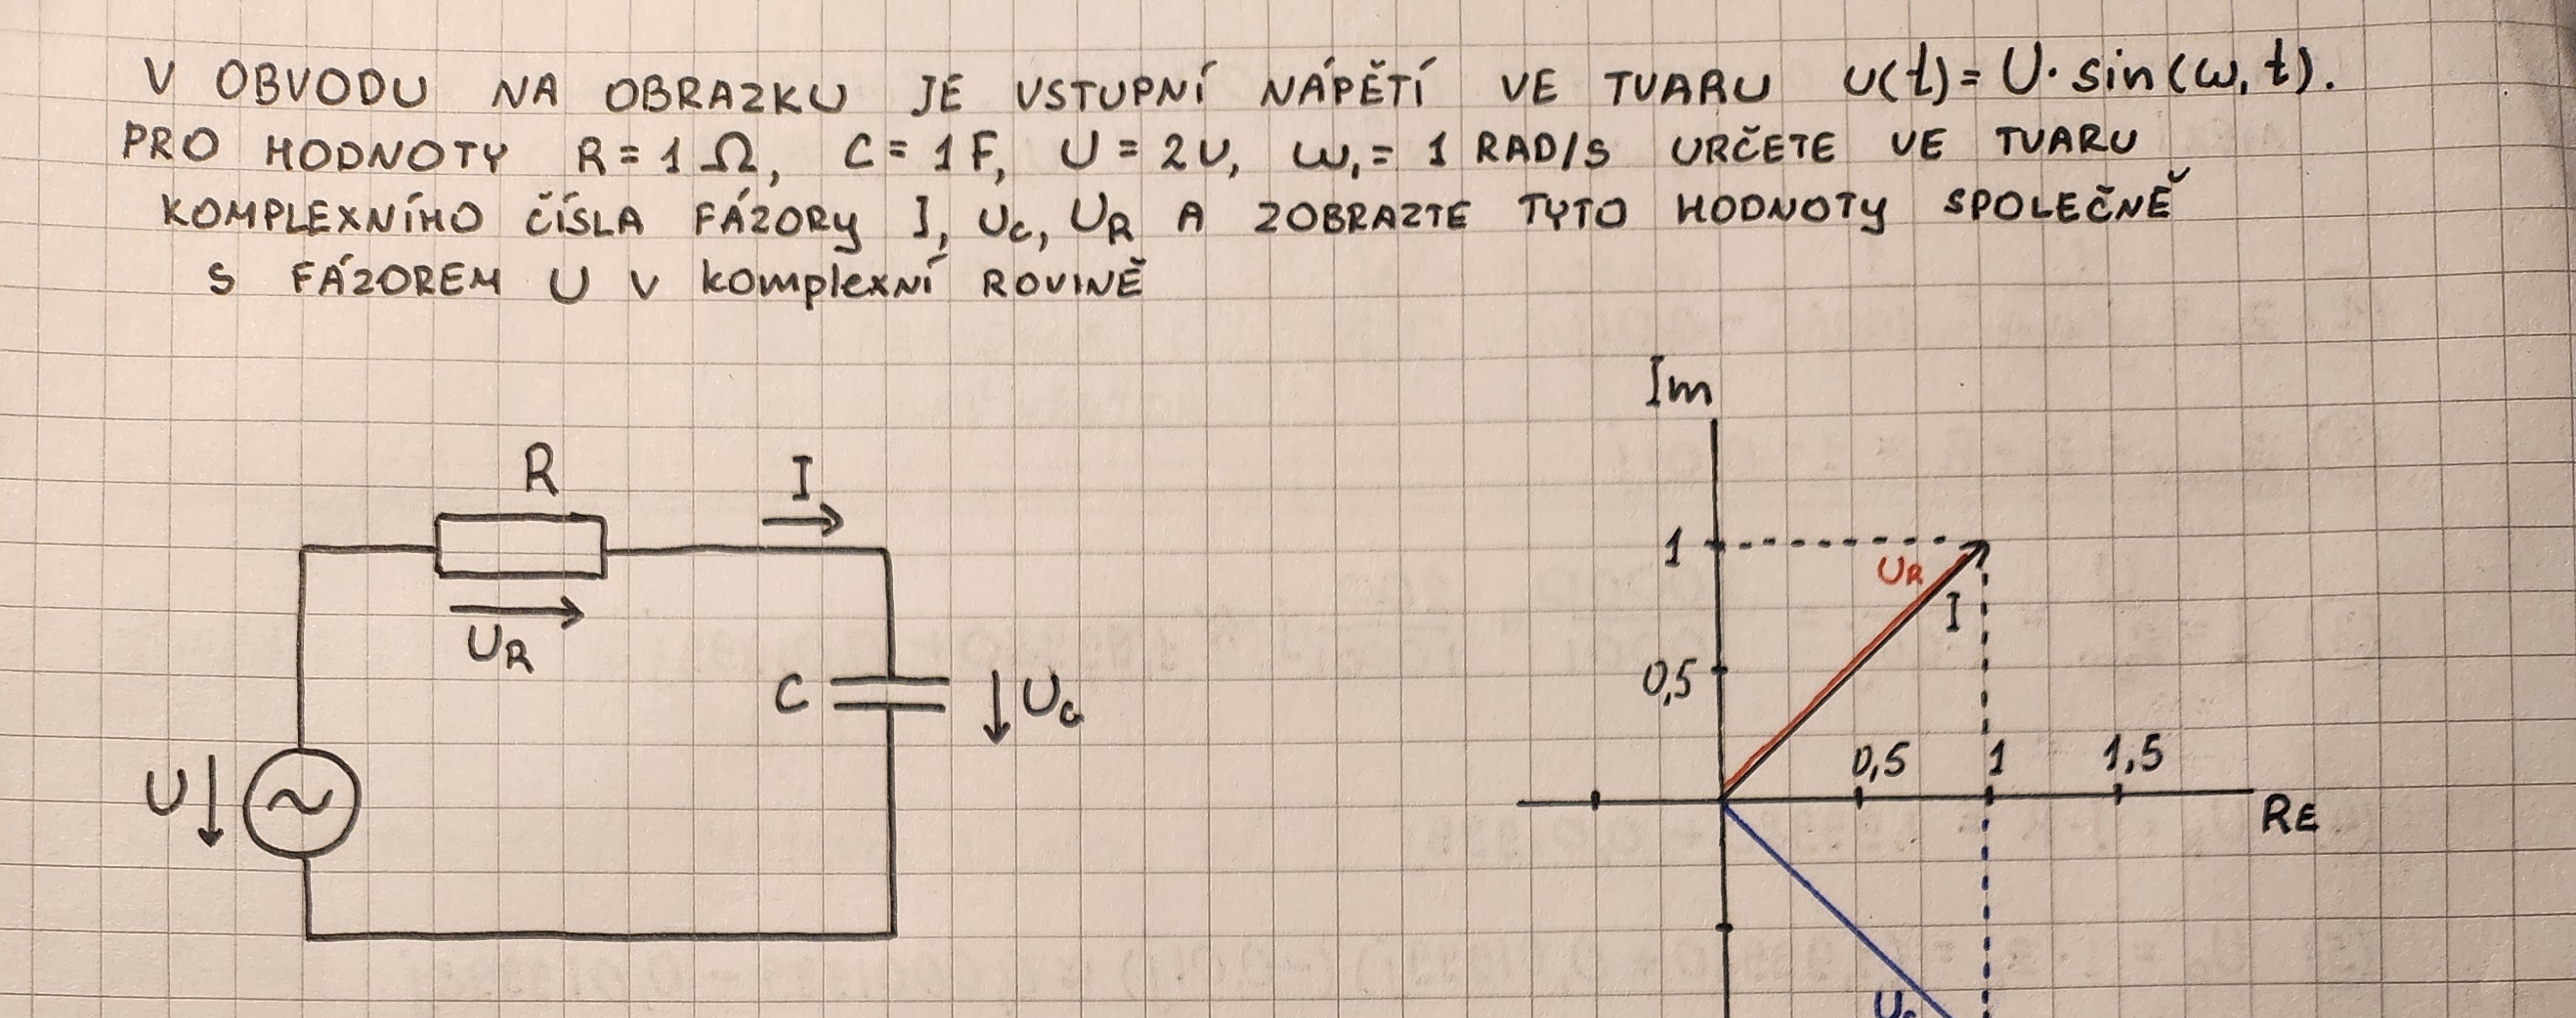 V OBVODU NA OBRÁZKU JE VSTUPNÍ NÁPĚTÍ VE TVARU u(t)= U· sin(ω₁ t).
PRO HODNOTY R = 1 Ω, C = 1 F, U = 2V, ω₁ = 1 RAD/S URČETE VE TVARU
KOMPLEXNÍHO ČÍSLA FÁZORY I, Uc, UR A ZOBRAZTE TYTO HODNOTY SPOLEČNĚ
S FÁZOREM U V komplexní ROVINĚ
Im
R
I
1
UR
I
UR
0,5
C
Uc
0,5
1
1,5
U
~
Re
Uc